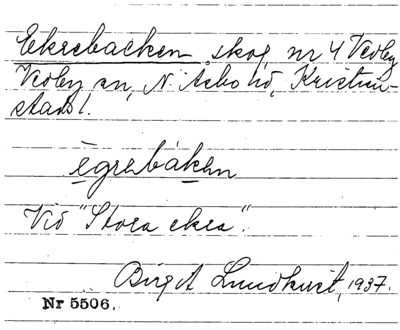 Ekrebacken, skog, nr 4 Vedby
Vedby sn, N. Åsbo hd, Kristian-
stads l.
ègrebákεn
Vid "Stora ekra".
Birgit Lundkvist, 1937.
Nr 5506.